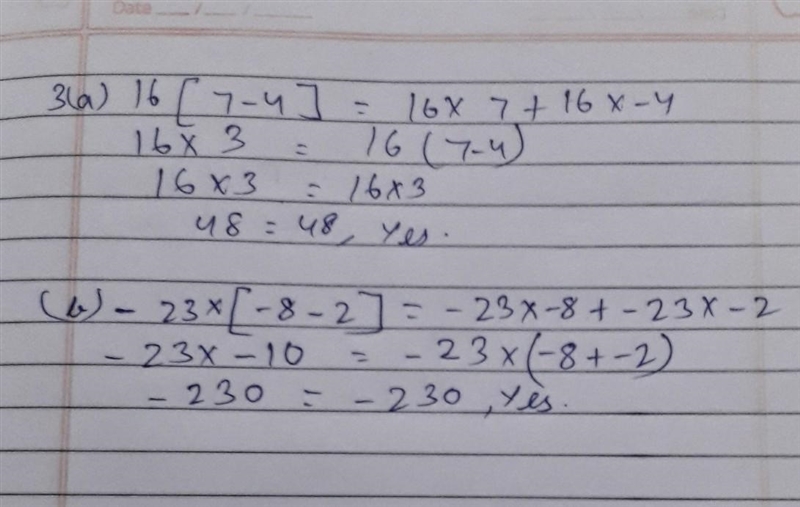 Date __/__/__
3(a) 16 [ 7-4 ] = 16 x 7 + 16 x -4
16 x 3 = 16 (7-4)
16 x 3 = 16 x 3
48 = 48, Yes.
(b) - 23 x [ -8 - 2 ] = - 23 x -8 + - 23 x - 2
- 23 x - 10 = - 23 x (-8 + -2)
- 230 = - 230, Yes.